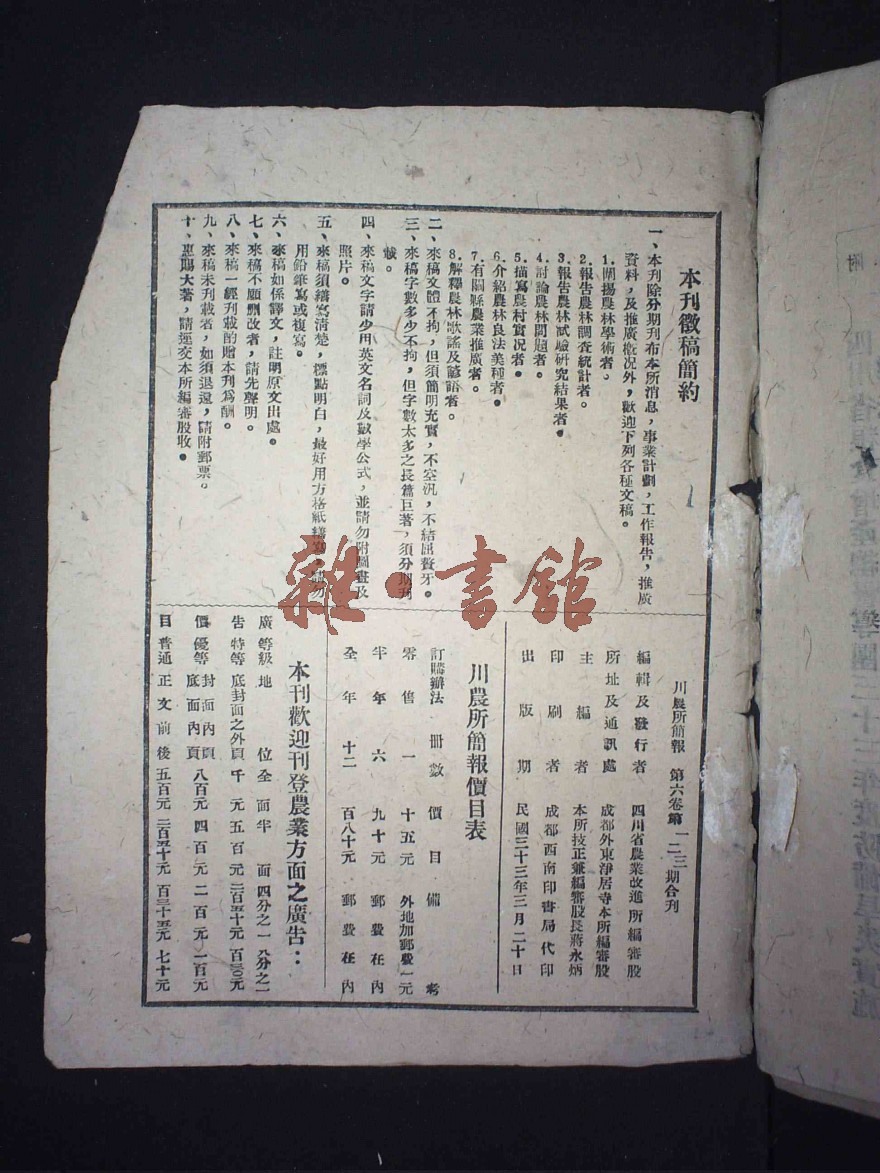 本刊徵稿簡約
一、本刊除分期刊布本所消息，事業計劃，工作報告，推廣
資料，及推廣概况外，歡迎下列各種文稿。
1.闡揚農林學術者。
2.報告農林調查統計者。
3.報告農林試驗研究結果者。
4.討論農林問題者。
5.描寫農村實况者。
6.介紹農林良法美種者。
7.有關縣農業推廣者。
8.解釋農林歌謠及諺語者。
二、來稿文體不拘，但須簡明充實，不空汎，不結屈聱牙。
三、來稿字數多少不拘，但字數太多之長篇巨著，須分期刊
載。
四、來稿文字請少用英文名詞及數學公式，並請勿附圖畫及
照片。
五、來稿須繕寫清楚，標點明白，最好用方格紙繕寫，請勿
用鉛筆寫或複寫。
六、來稿如係譯文，註明原文出處。
七、來稿不願刪改者，請先聲明。
八、來稿一經刊載酌贈本刊爲酬。
九、來稿未刊載者，如須退還，請附郵票。
十、惠賜大著，請逕交本所編審股收。
川農所簡報 第六卷第一二三期合刊
編輯及發行者 四川省農業改進所編審股
所址及通訊處 成都外東淨居寺本所編審股
主編者 本所技正兼編審股長蔣永炳
印刷者 成都西南印書局代印
出版期 民國三十三年三月二十日
川農所簡報價目表
訂購辦法 冊數 價目 備考
零售 一 十五元 外地加郵費一元
半年 六 九十元 郵費在內
全年 十二 百八十元 郵費在內
本刊歡迎刊登農業方面之廣告：
廣 等級 地位 全面 半面 四分之一 八分之一
告 特等 底封面之外頁 千元 五百元 二百五十元 百二〇元
價 優等 封面內頁 底面內頁 八百元 四百元 二百元 一百元
目 普通 正文前後 五百元 二百五十元 百二十五元 七十元
雜·書館